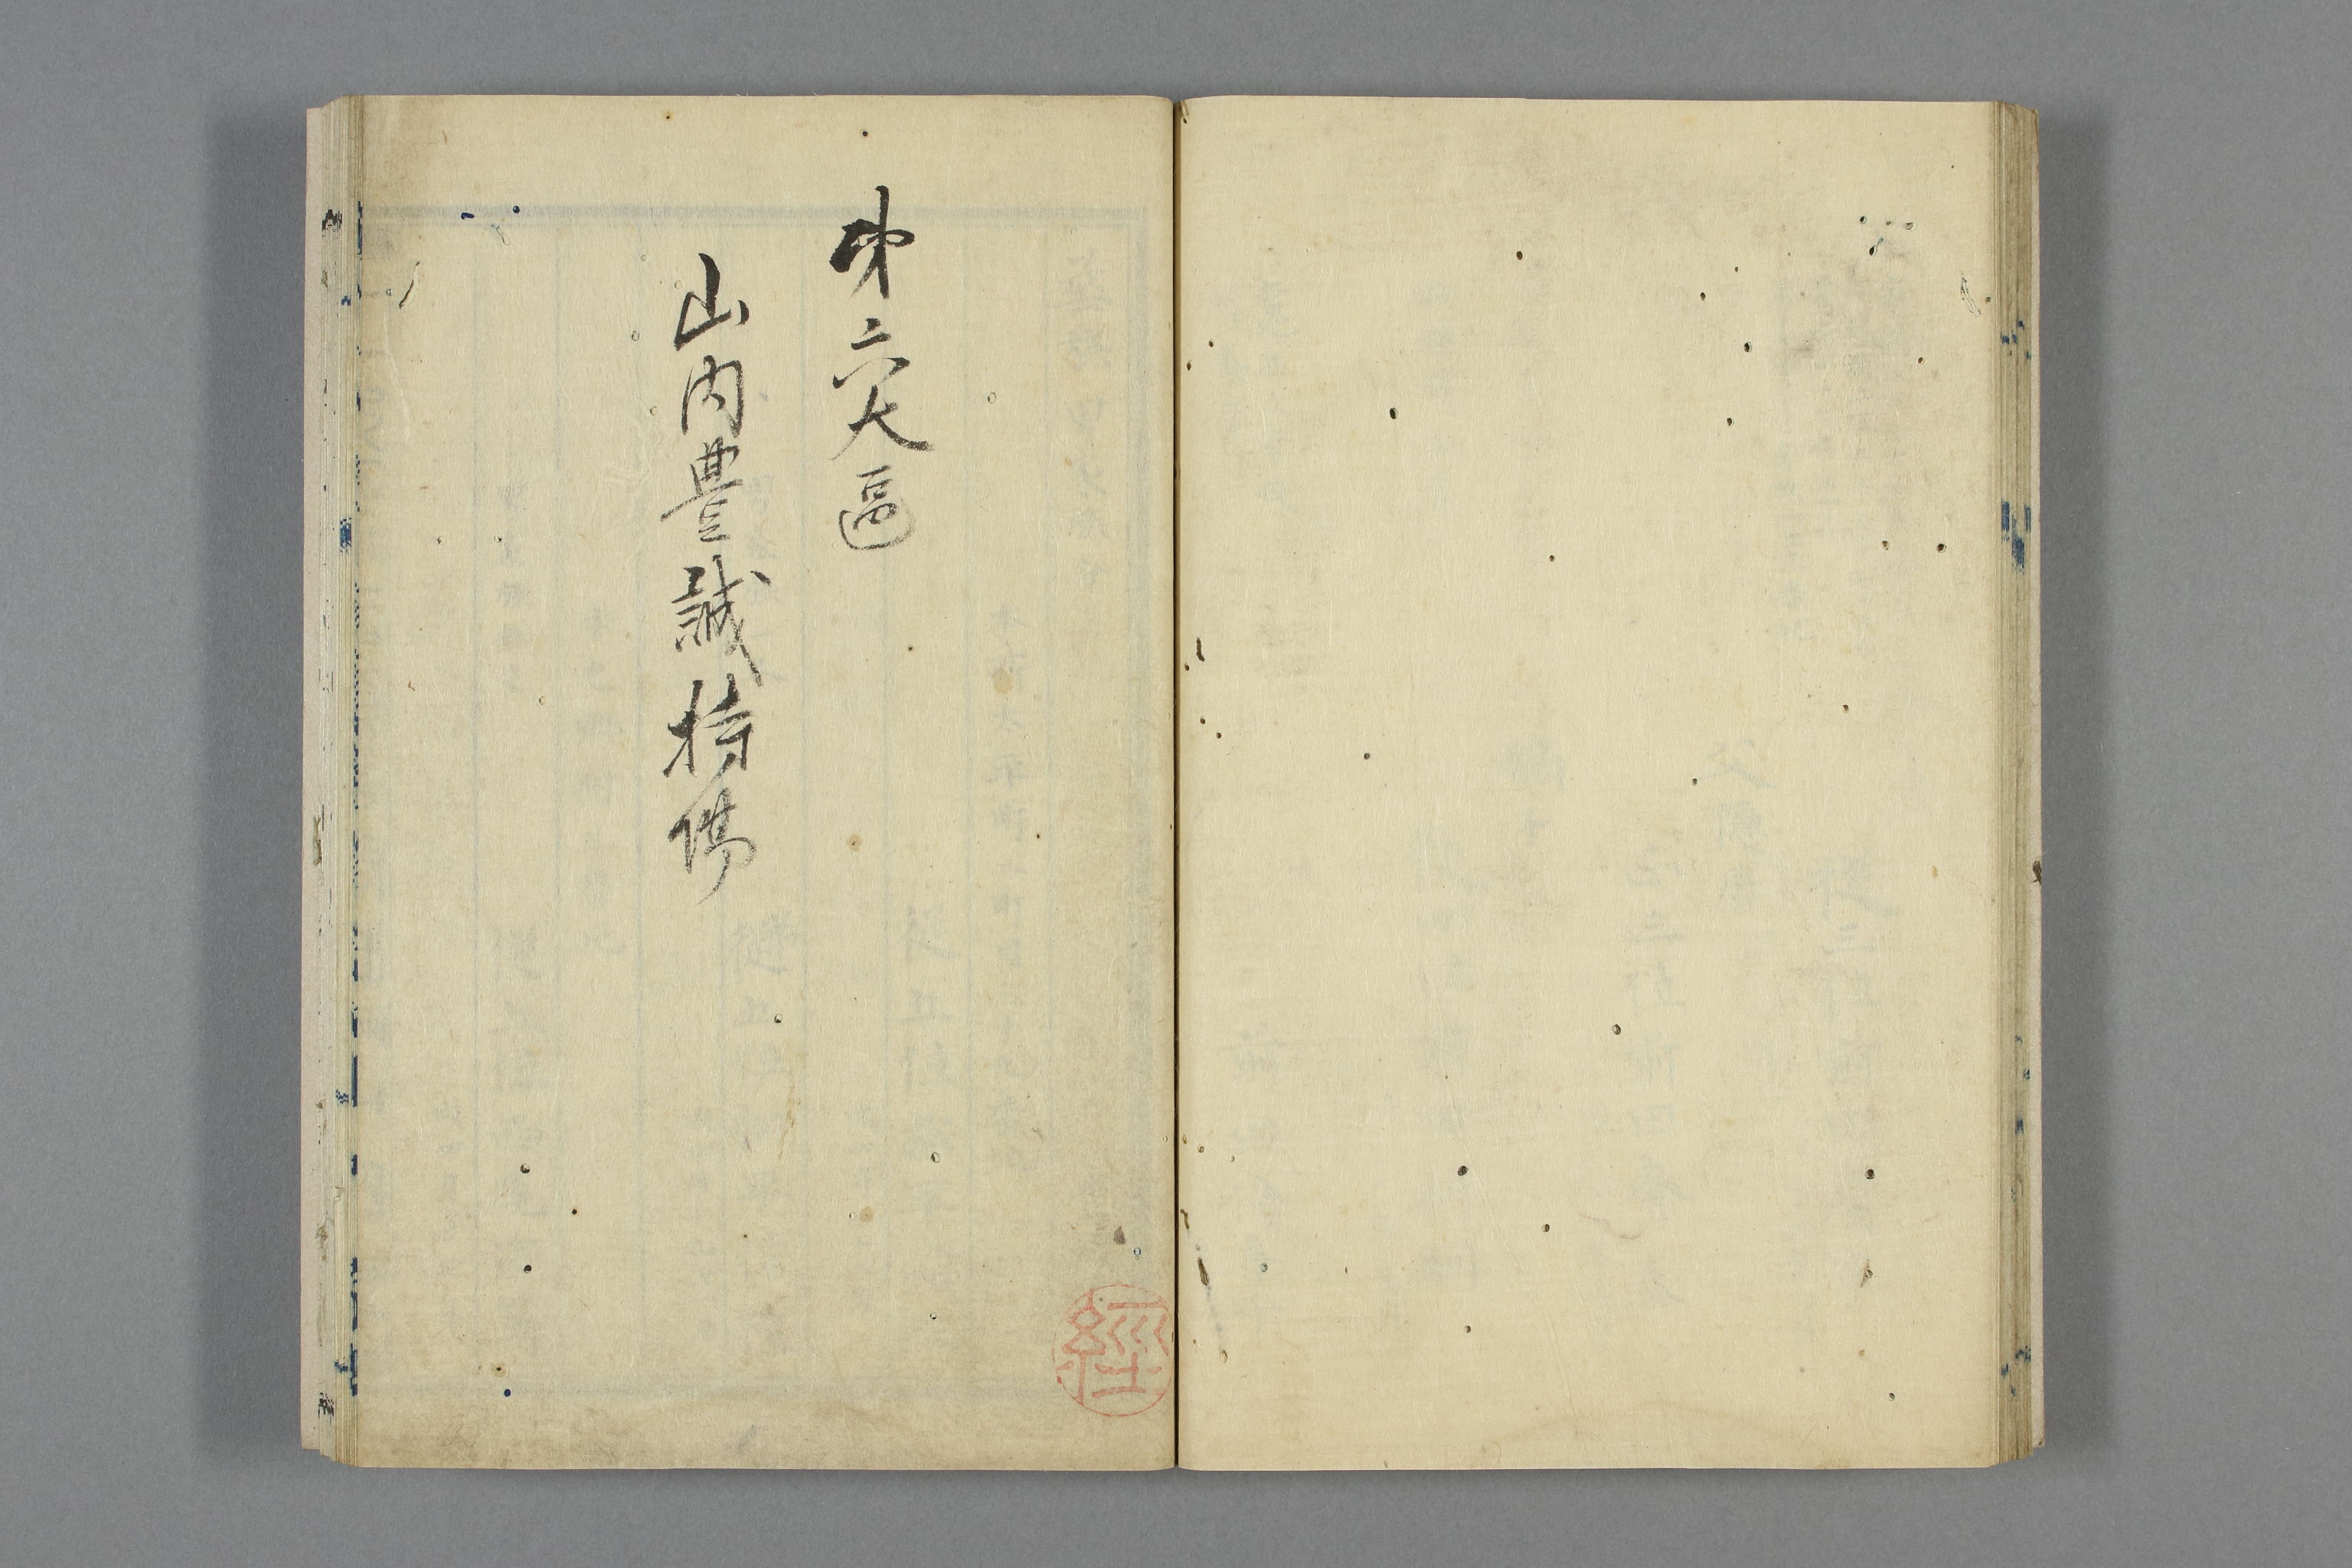 第六大區
山内豊誠持場
經